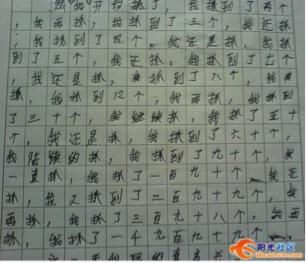 然后我开始抓了，我抓到了两个
，我再抓，我抓到了三个，我还抓
，我抓到了五个，我还是抓，我抓
到了五个，我还抓，我抓到了六个
，我还是抓，我抓到了八个，我再
抓，我抓到12个，我再抓，我抓到
了三十个，我继续抓，我抓了五十
个，我还是抓，我抓到了六十个，
我陆续的抓，我抓到了九十个，我
一直抓，我抓了一百九十个，我还
抓，我又抓到了三百九十九个，我
再抓，我抓了三百九十八个，我再
抓，我抓了一千九百九十九个，
阳光社区